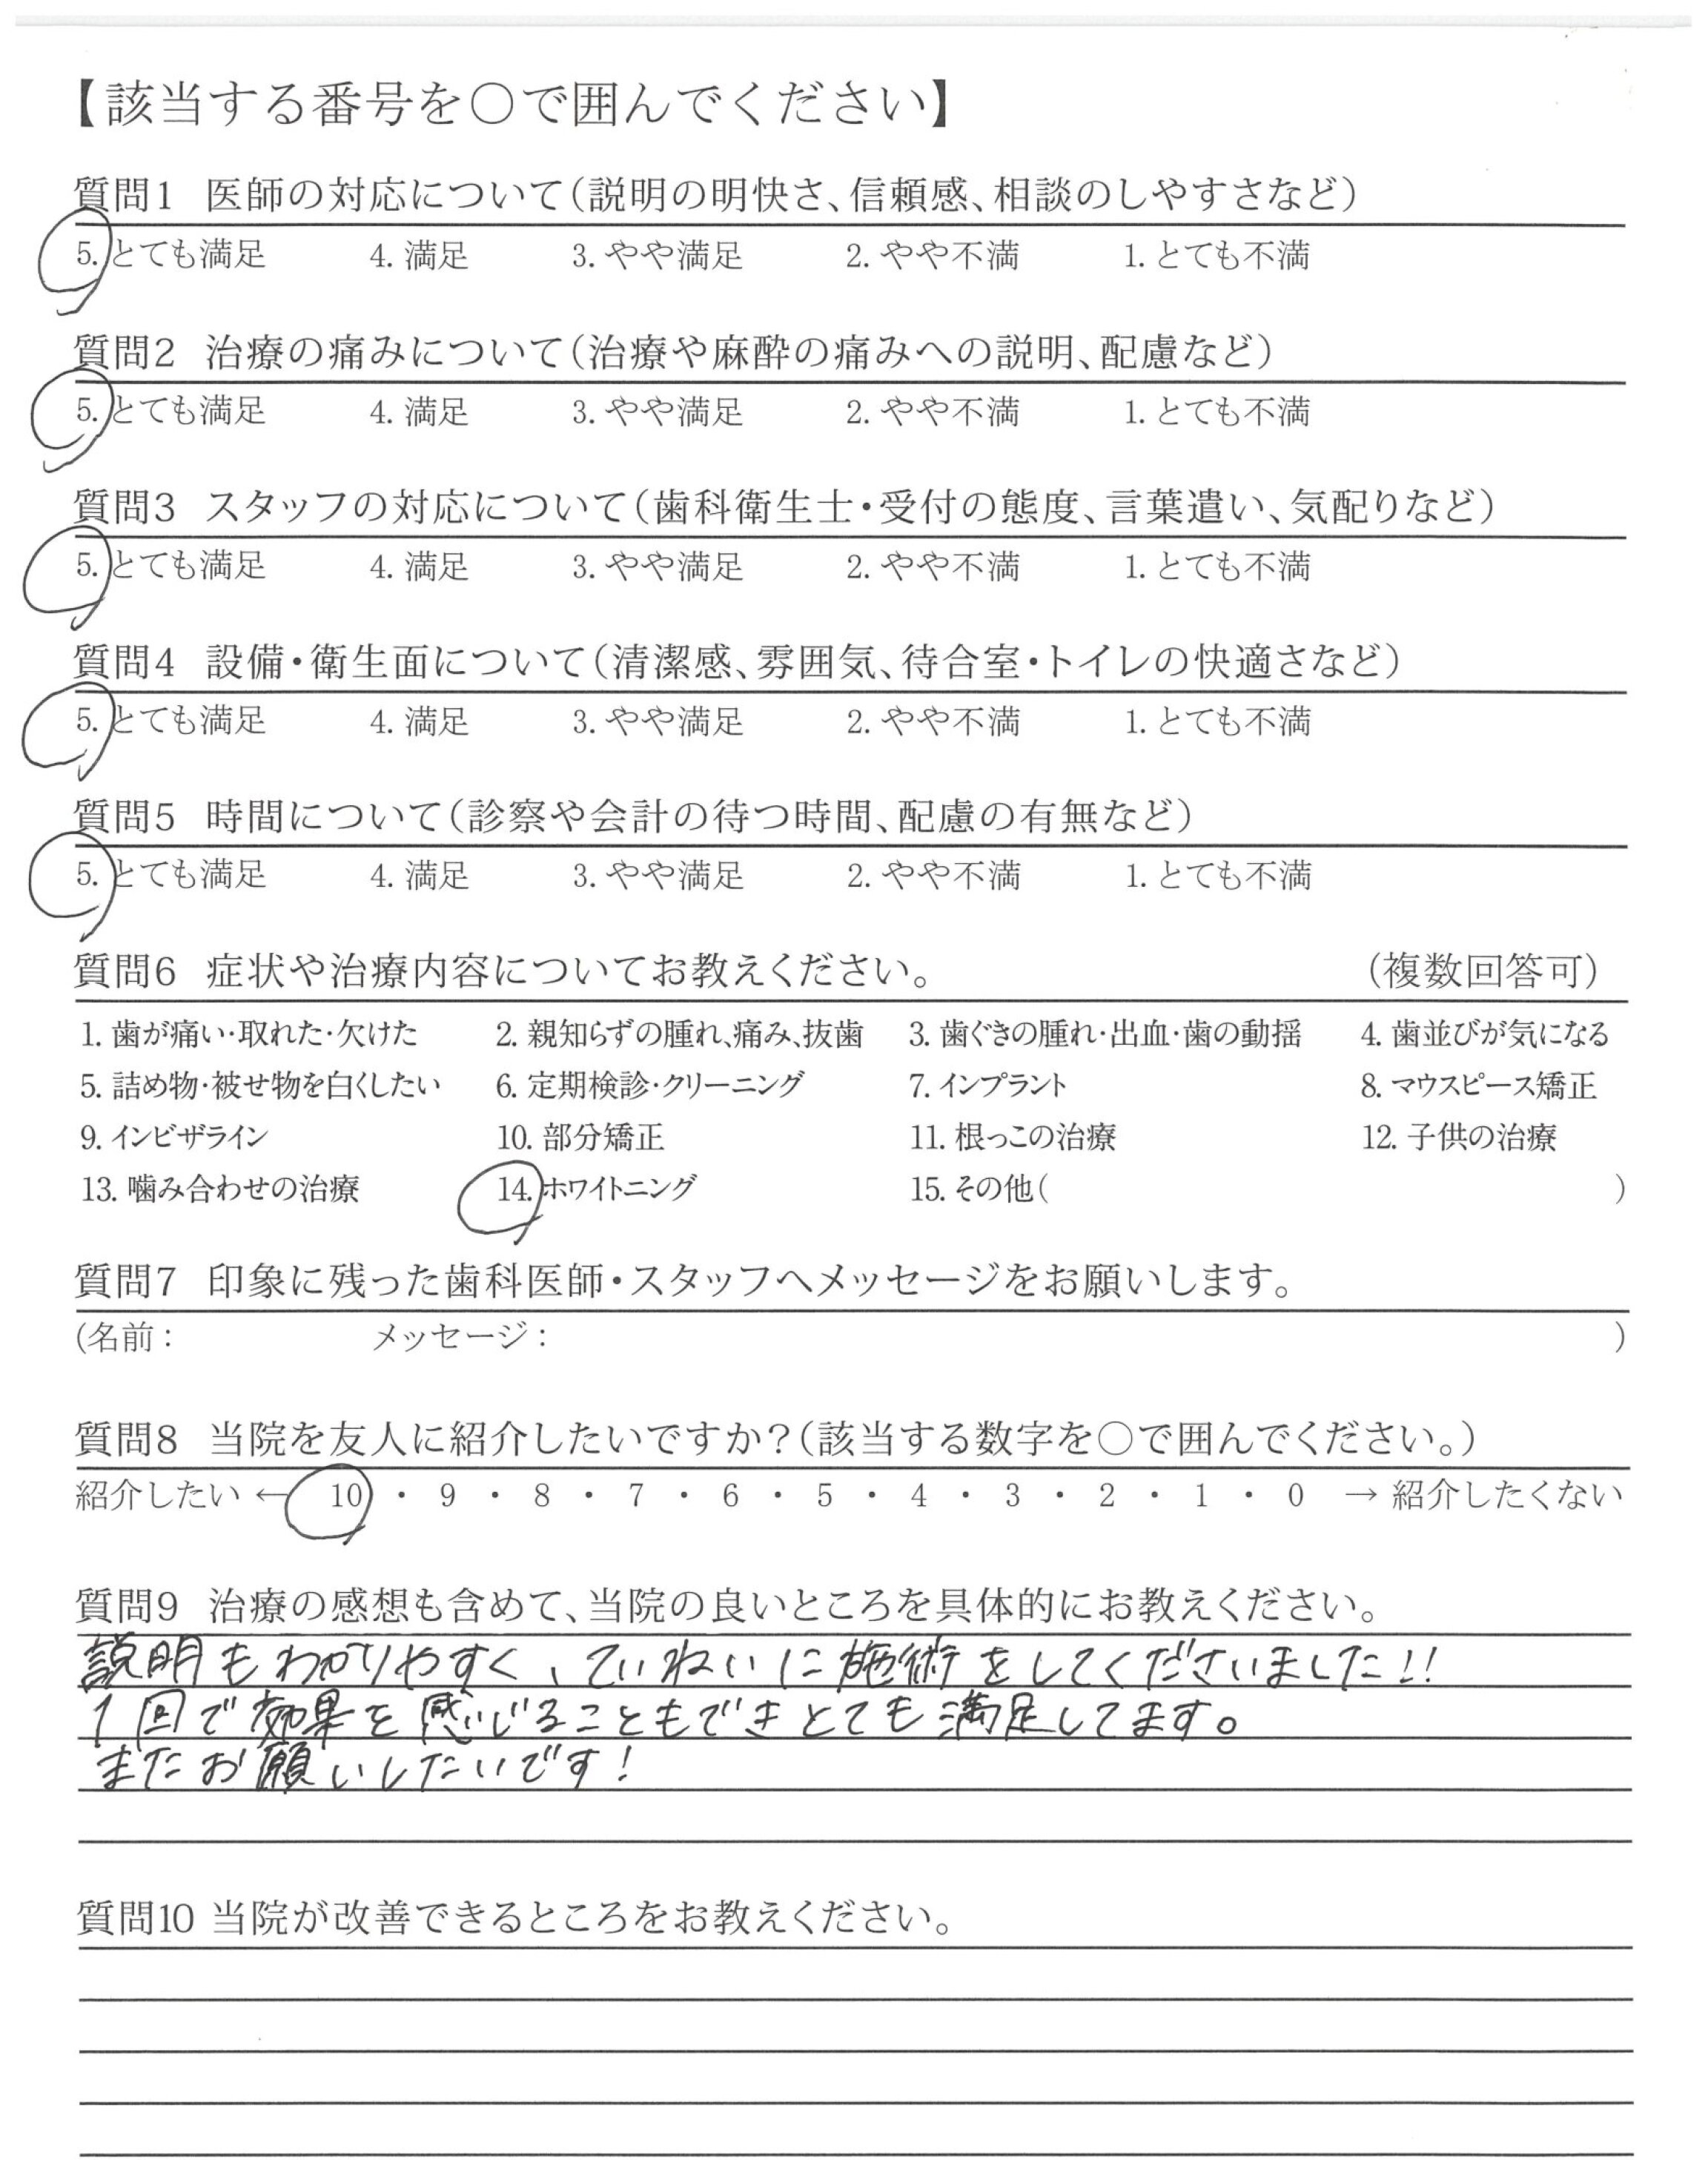 【該当する番号を〇で囲んでください】
質問1 医師の対応について(説明の明快さ、信頼感、相談のしやすさなど)
5. とても満足 4. 満足 3. やや満足 2. やや不満 1. とても不満
質問2 治療の痛みについて(治療や麻酔の痛みへの説明、配慮など)
5. とても満足 4. 満足 3. やや満足 2. やや不満 1. とても不満
質問3 スタッフの対応について(歯科衛生士・受付の態度、言葉遣い、気配りなど)
5. とても満足 4. 満足 3. やや満足 2. やや不満 1. とても不満
質問4 設備・衛生面について(清潔感、雰囲気、待合室・トイレの快適さなど)
5. とても満足 4. 満足 3. やや満足 2. やや不満 1. とても不満
質問5 時間について(診察や会計の待つ時間、配慮の有無など)
5. とても満足 4. 満足 3. やや満足 2. やや不満 1. とても不満
質問6 症状や治療内容についてお教えください。 (複数回答可)
1. 歯が痛い・取れた・欠けた 2. 親知らずの腫れ、痛み、抜歯 3. 歯ぐきの腫れ・出血・歯の動揺 4. 歯並びが気になる
5. 詰め物・被せ物を白くしたい 6. 定期検診・クリーニング 7. インプラント 8. マウスピース矯正
9. インビザライン 10. 部分矯正 11. 根っこの治療 12. 子供の治療
13. 噛み合わせの治療 14. ホワイトニング 15. その他( )
質問7 印象に残った歯科医師・スタッフへメッセージをお願いします。
(名前: メッセージ: )
質問8 当院を友人に紹介したいですか?(該当する数字を〇で囲んでください。)
紹介したい ← 10 ・ 9 ・ 8 ・ 7 ・ 6 ・ 5 ・ 4 ・ 3 ・ 2 ・ 1 ・ 0 → 紹介したくない
質問9 治療の感想も含めて、当院の良いところを具体的にお教えください。
説明もわかりやすく、ていねいに施術をしてくださいました!!
1回で効果を感じることもできとても満足してます。
またお願いしたいです!
質問10 当院が改善できるところをお教えください。